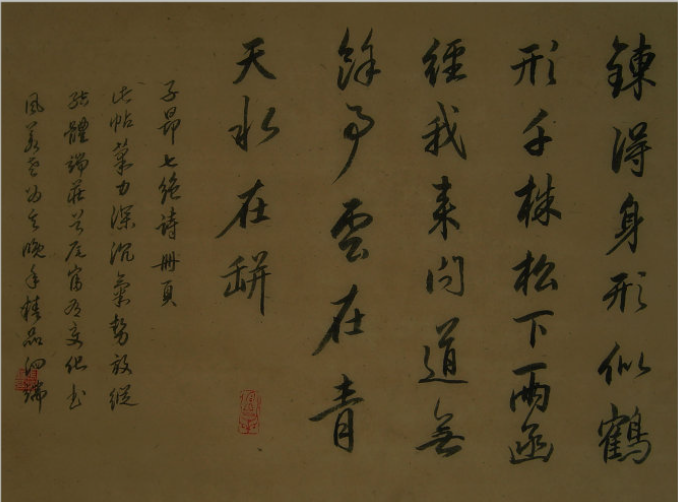 鍊得身形似鶴
形千株松下兩函
經我來問道無
餘事雲在青
天水在缾
子昂七絕詩冊頁
此帖筆力深沉氣勢放縱
結體端莊首尾富有變化書
風為晚年精品